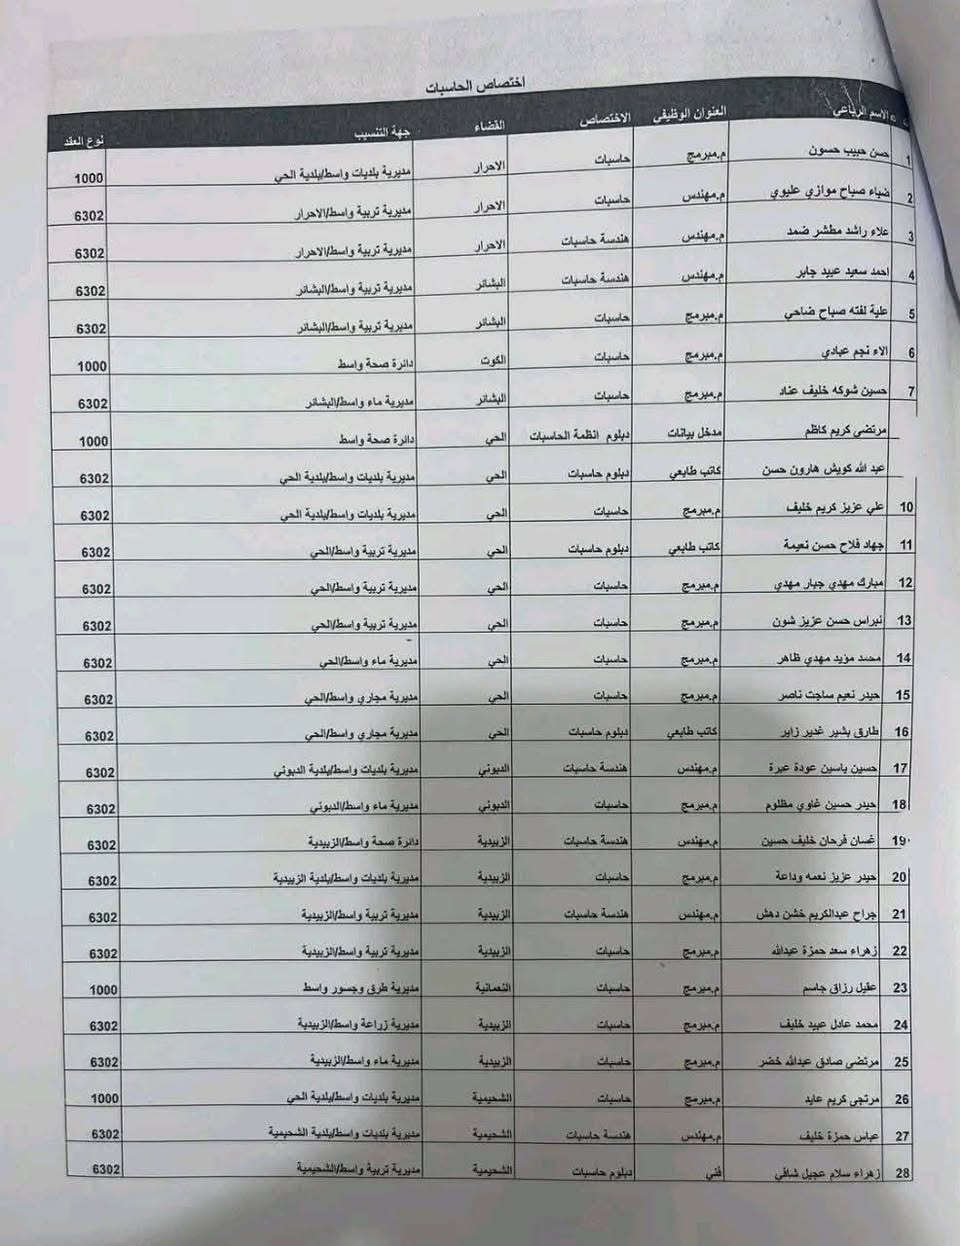 اختصاص الحاسبات
ت الاسم الرباعي العنوان الوظيفي الاختصاص القضاء جهة التنسيب نوع العقد
1 حسن حبيب حسون م.مبرمج حاسبات الاحرار مديرية بلديات واسط/بلدية الحي 1000
2 ضياء صباح موازي عليوي م.مهندس حاسبات الاحرار مديرية تربية واسط/الاحرار 6302
3 علاء راشد مطشر ضمد م.مهندس هندسة حاسبات الاحرار مديرية تربية واسط/الاحرار 6302
4 احمد سعيد عبيد جابر م.مهندس هندسة حاسبات البشائر مديرية تربية واسط/البشائر 6302
5 علية لفته صباح ضاحي م.مبرمج حاسبات البشائر مديرية تربية واسط/البشائر 6302
6 الاء نجم عبادي م.مبرمج حاسبات الكوت دائرة صحة واسط 1000
7 حسين شوكه خليف عناد م.مبرمج حاسبات البشائر مديرية ماء واسط/البشائر 6302
مرتضى كريم كاظم مدخل بيانات دبلوم انظمة الحاسبات الحي دائرة صحة واسط 1000
عبد الله كويش هارون حسن كاتب طابعي دبلوم حاسبات الحي مديرية بلديات واسط/بلدية الحي 6302
10 علي عزيز كريم خليف م.مبرمج حاسبات الحي مديرية بلديات واسط/بلدية الحي 6302
11 جهاد فلاح حسن نعيمة كاتب طابعي دبلوم حاسبات الحي مديرية تربية واسط/الحي 6302
12 مبارك مهدي جبار مهدي م.مبرمج حاسبات الحي مديرية تربية واسط/الحي 6302
13 نبراس حسن عزيز شون م.مبرمج حاسبات الحي مديرية تربية واسط/الحي 6302
14 محمد مؤيد مهدي ظاهر م.مبرمج حاسبات الحي مديرية ماء واسط/الحي 6302
15 حيدر نعيم ساجت ناصر م.مبرمج حاسبات الحي مديرية مجاري واسط/الحي 6302
16 طارق بشير غدير زاير كاتب طابعي دبلوم حاسبات الحي مديرية مجاري واسط/الحي 6302
17 حسين ياسين عودة عبرة م.مهندس هندسة حاسبات الدبوني مديرية بلديات واسط/بلدية الدبوني 6302
18 حيدر حسين غاوي مظلوم م.مبرمج حاسبات الدبوني مديرية ماء واسط/الدبوني 6302
19 غسان فرحان خليف حسين م.مهندس هندسة حاسبات الزبيدية دائرة صحة واسط/الزبيدية 6302
20 حيدر عزيز نعمه وداعة م.مبرمج حاسبات الزبيدية مديرية بلديات واسط/بلدية الزبيدية 6302
21 جراح عبدالكريم خشن دهش م.مهندس هندسة حاسبات الزبيدية مديرية تربية واسط/الزبيدية 6302
22 زهراء سعد حمزة عبدالله م.مبرمج حاسبات الزبيدية مديرية تربية واسط/الزبيدية 6302
23 عقيل رزاق جاسم م.مبرمج حاسبات النعمانية مديرية طرق وجسور واسط 1000
24 محمد عادل عبيد خليف م.مبرمج حاسبات الزبيدية مديرية زراعة واسط/الزبيدية 6302
25 مرتضى صادق عبدالله خضر م.مبرمج حاسبات الزبيدية مديرية ماء واسط/الزبيدية 6302
26 مرتجى كريم عايد م.مبرمج حاسبات الشحيمية مديرية بلديات واسط/بلدية الحي 1000
27 عباس حمزة خليف م.مهندس هندسة حاسبات الشحيمية مديرية بلديات واسط/بلدية الشحيمية 6302
28 زهراء سلام عجيل شافي فني دبلوم حاسبات الشحيمية مديرية تربية واسط/الشحيمية 6302